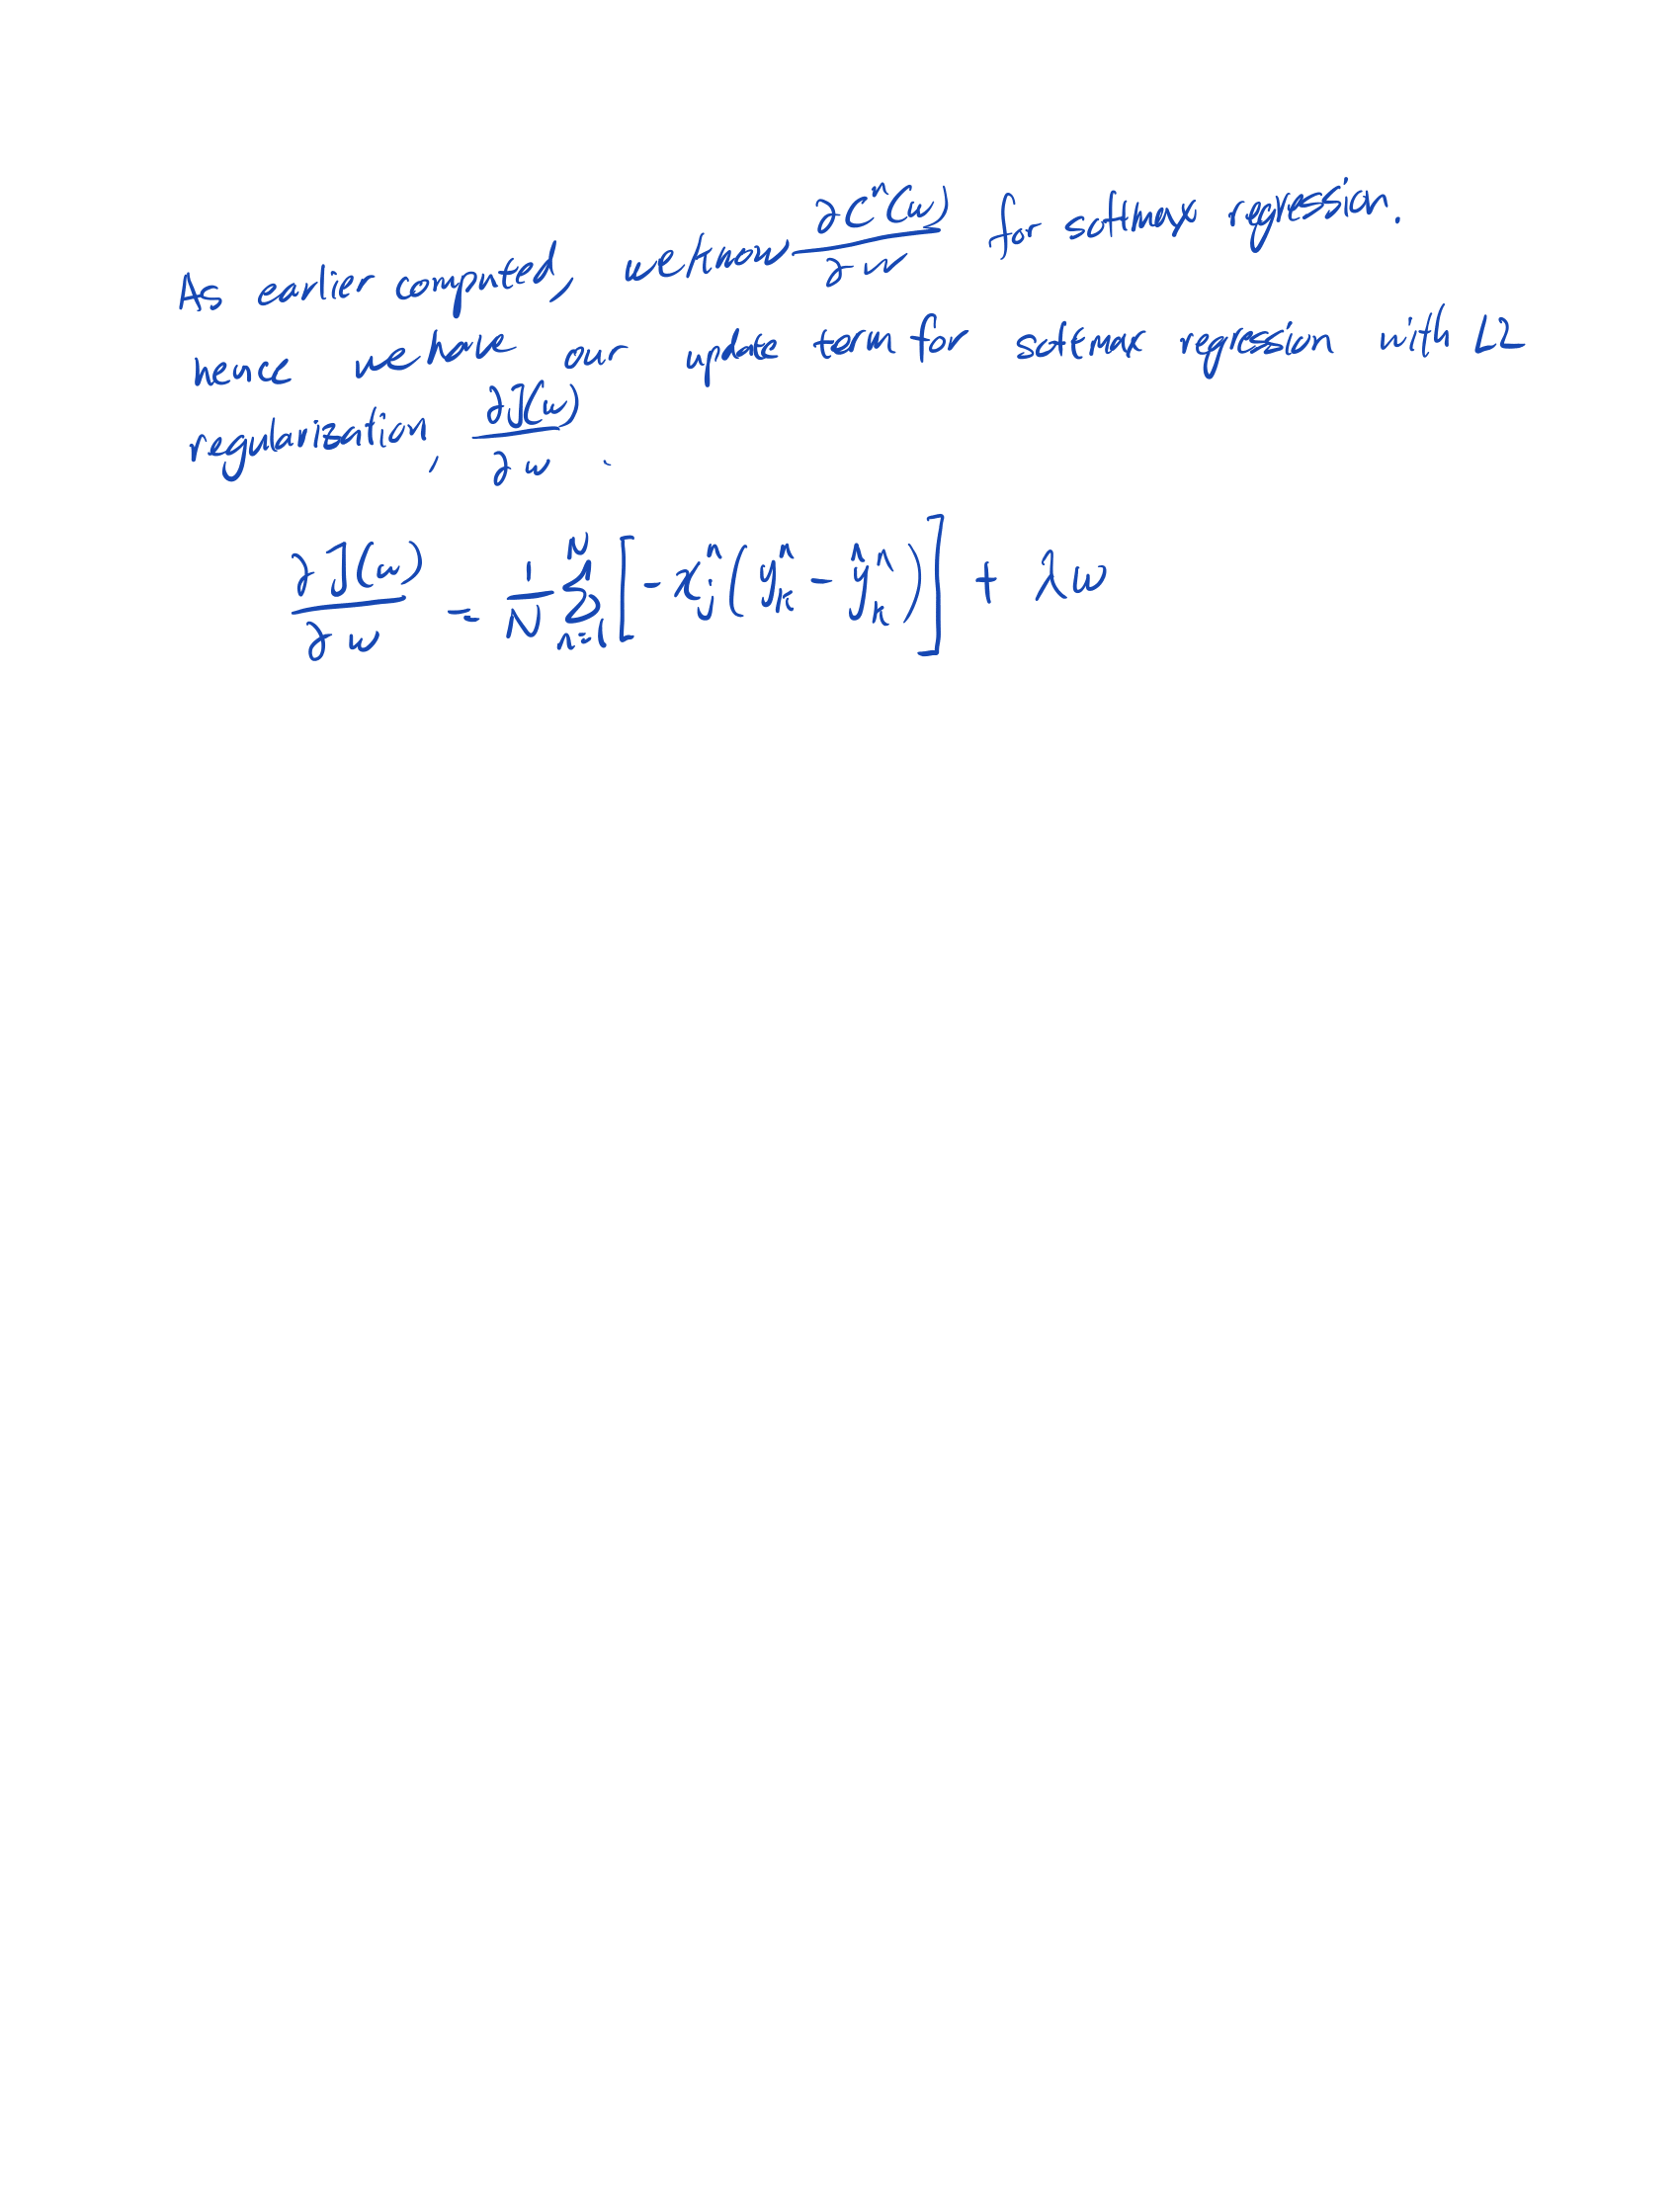 As earlier computed, we know ∂Cⁿ(w)/∂w for softmax regression.
hence we have our update term for softmax regression with L2
regularization, ∂J(w)/∂w .
∂J(w)/∂w = 1/N ∑_{n=1}^{N} [-x_j^n (y_k^n - ŷ_k^n)] + λw